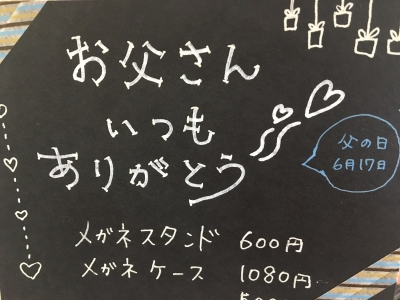 お父さん
いつも
ありがとう
父の日
6月17日
メガネスタンド 600円
メガネケース 1080円